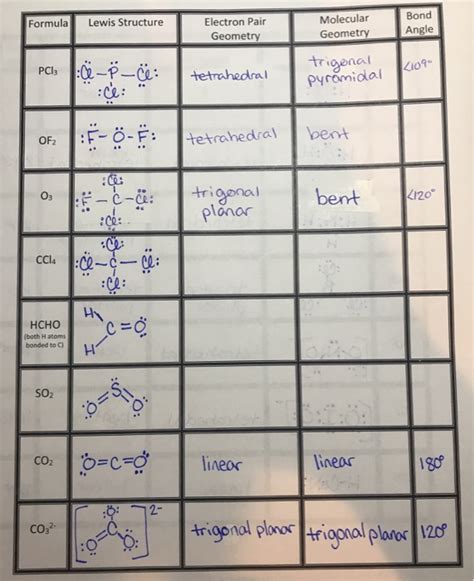 Formula Lewis Structure Electron Pair Geometry Molecular Geometry Bond Angle
PCl₃ :Cl-P-Cl: :Cl: tetrahedral trigonal pyramidal <109°
OF₂ :F-O-F: tetrahedral bent
O₃ :Cl: :F-C-Cl: :Cl: trigonal planar bent <120°
CCl₄ :Cl: :Cl-C-Cl: :Cl:
HCHO (both H atoms bonded to C) H C=O H
SO₂ O S O
CO₂ O=C=O linear linear 180°
CO₃²⁻ [:O: C O O]2- trigonal planar trigonal planar 120°